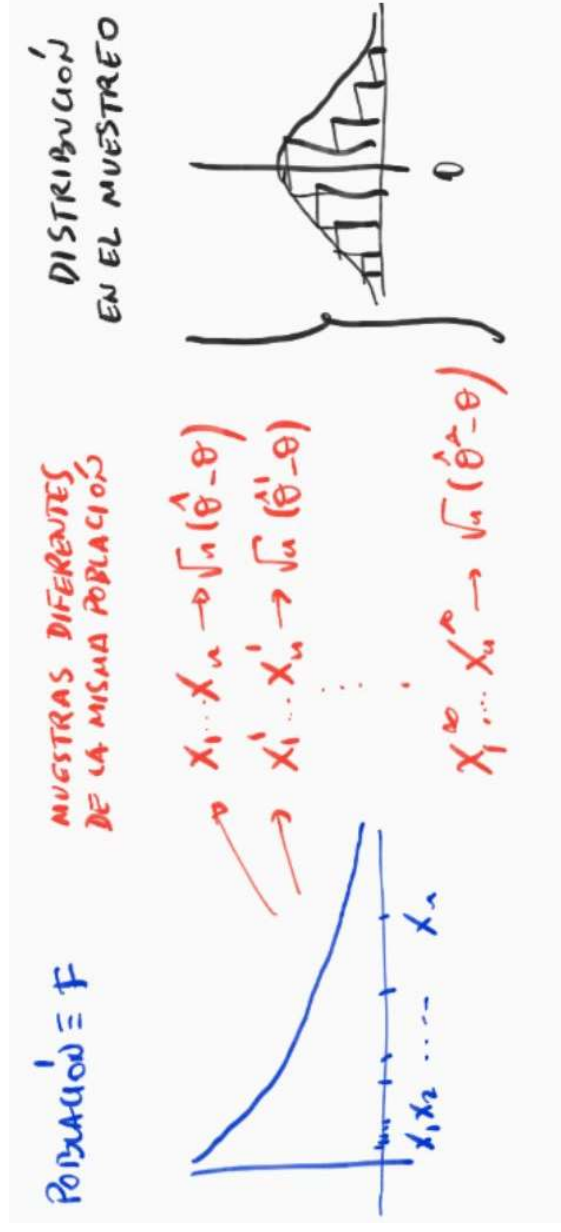 POBLACIÓN ≡ F
X₁ X₂ ..... Xₙ
MUESTRAS DIFERENTES
DE LA MISMA POBLACIÓN
X₁...Xₙ → √n(θ̂-θ)
X₁'...Xₙ' → √n(θ̂'-θ)
⋮
X₁^∞...Xₙ^∞ → √n(θ̂^∞-θ)
DISTRIBUCIÓN
EN EL MUESTREO
0